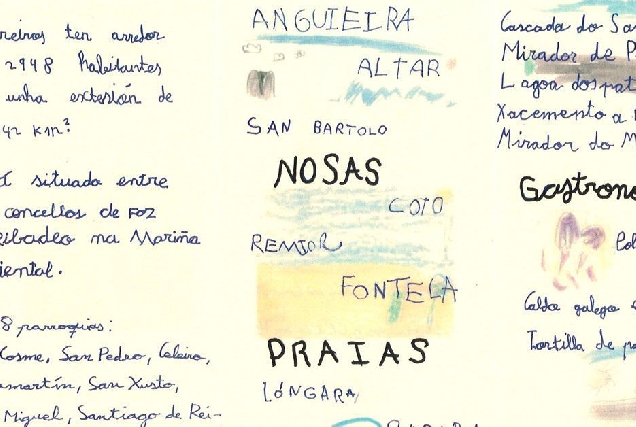 ter arredor
2948 habitantes
unha extesión de
km²
situada entre
concellos de Foz
na Mariña
8 parroquias:
Cosme, San Pedro, Celeiro,
San Xusto,
Miguel, Santiago de Rei-
ANGUIEIRA
ALTAR
SAN BARTOLO
NOSAS
COTO
REMIOR
FONTELA
PRAIAS
LÓNGARA
Cascada do
Mirador de
Lagoa dos
Xacemento a
Mirador do
Caldo galego
Tortilla de